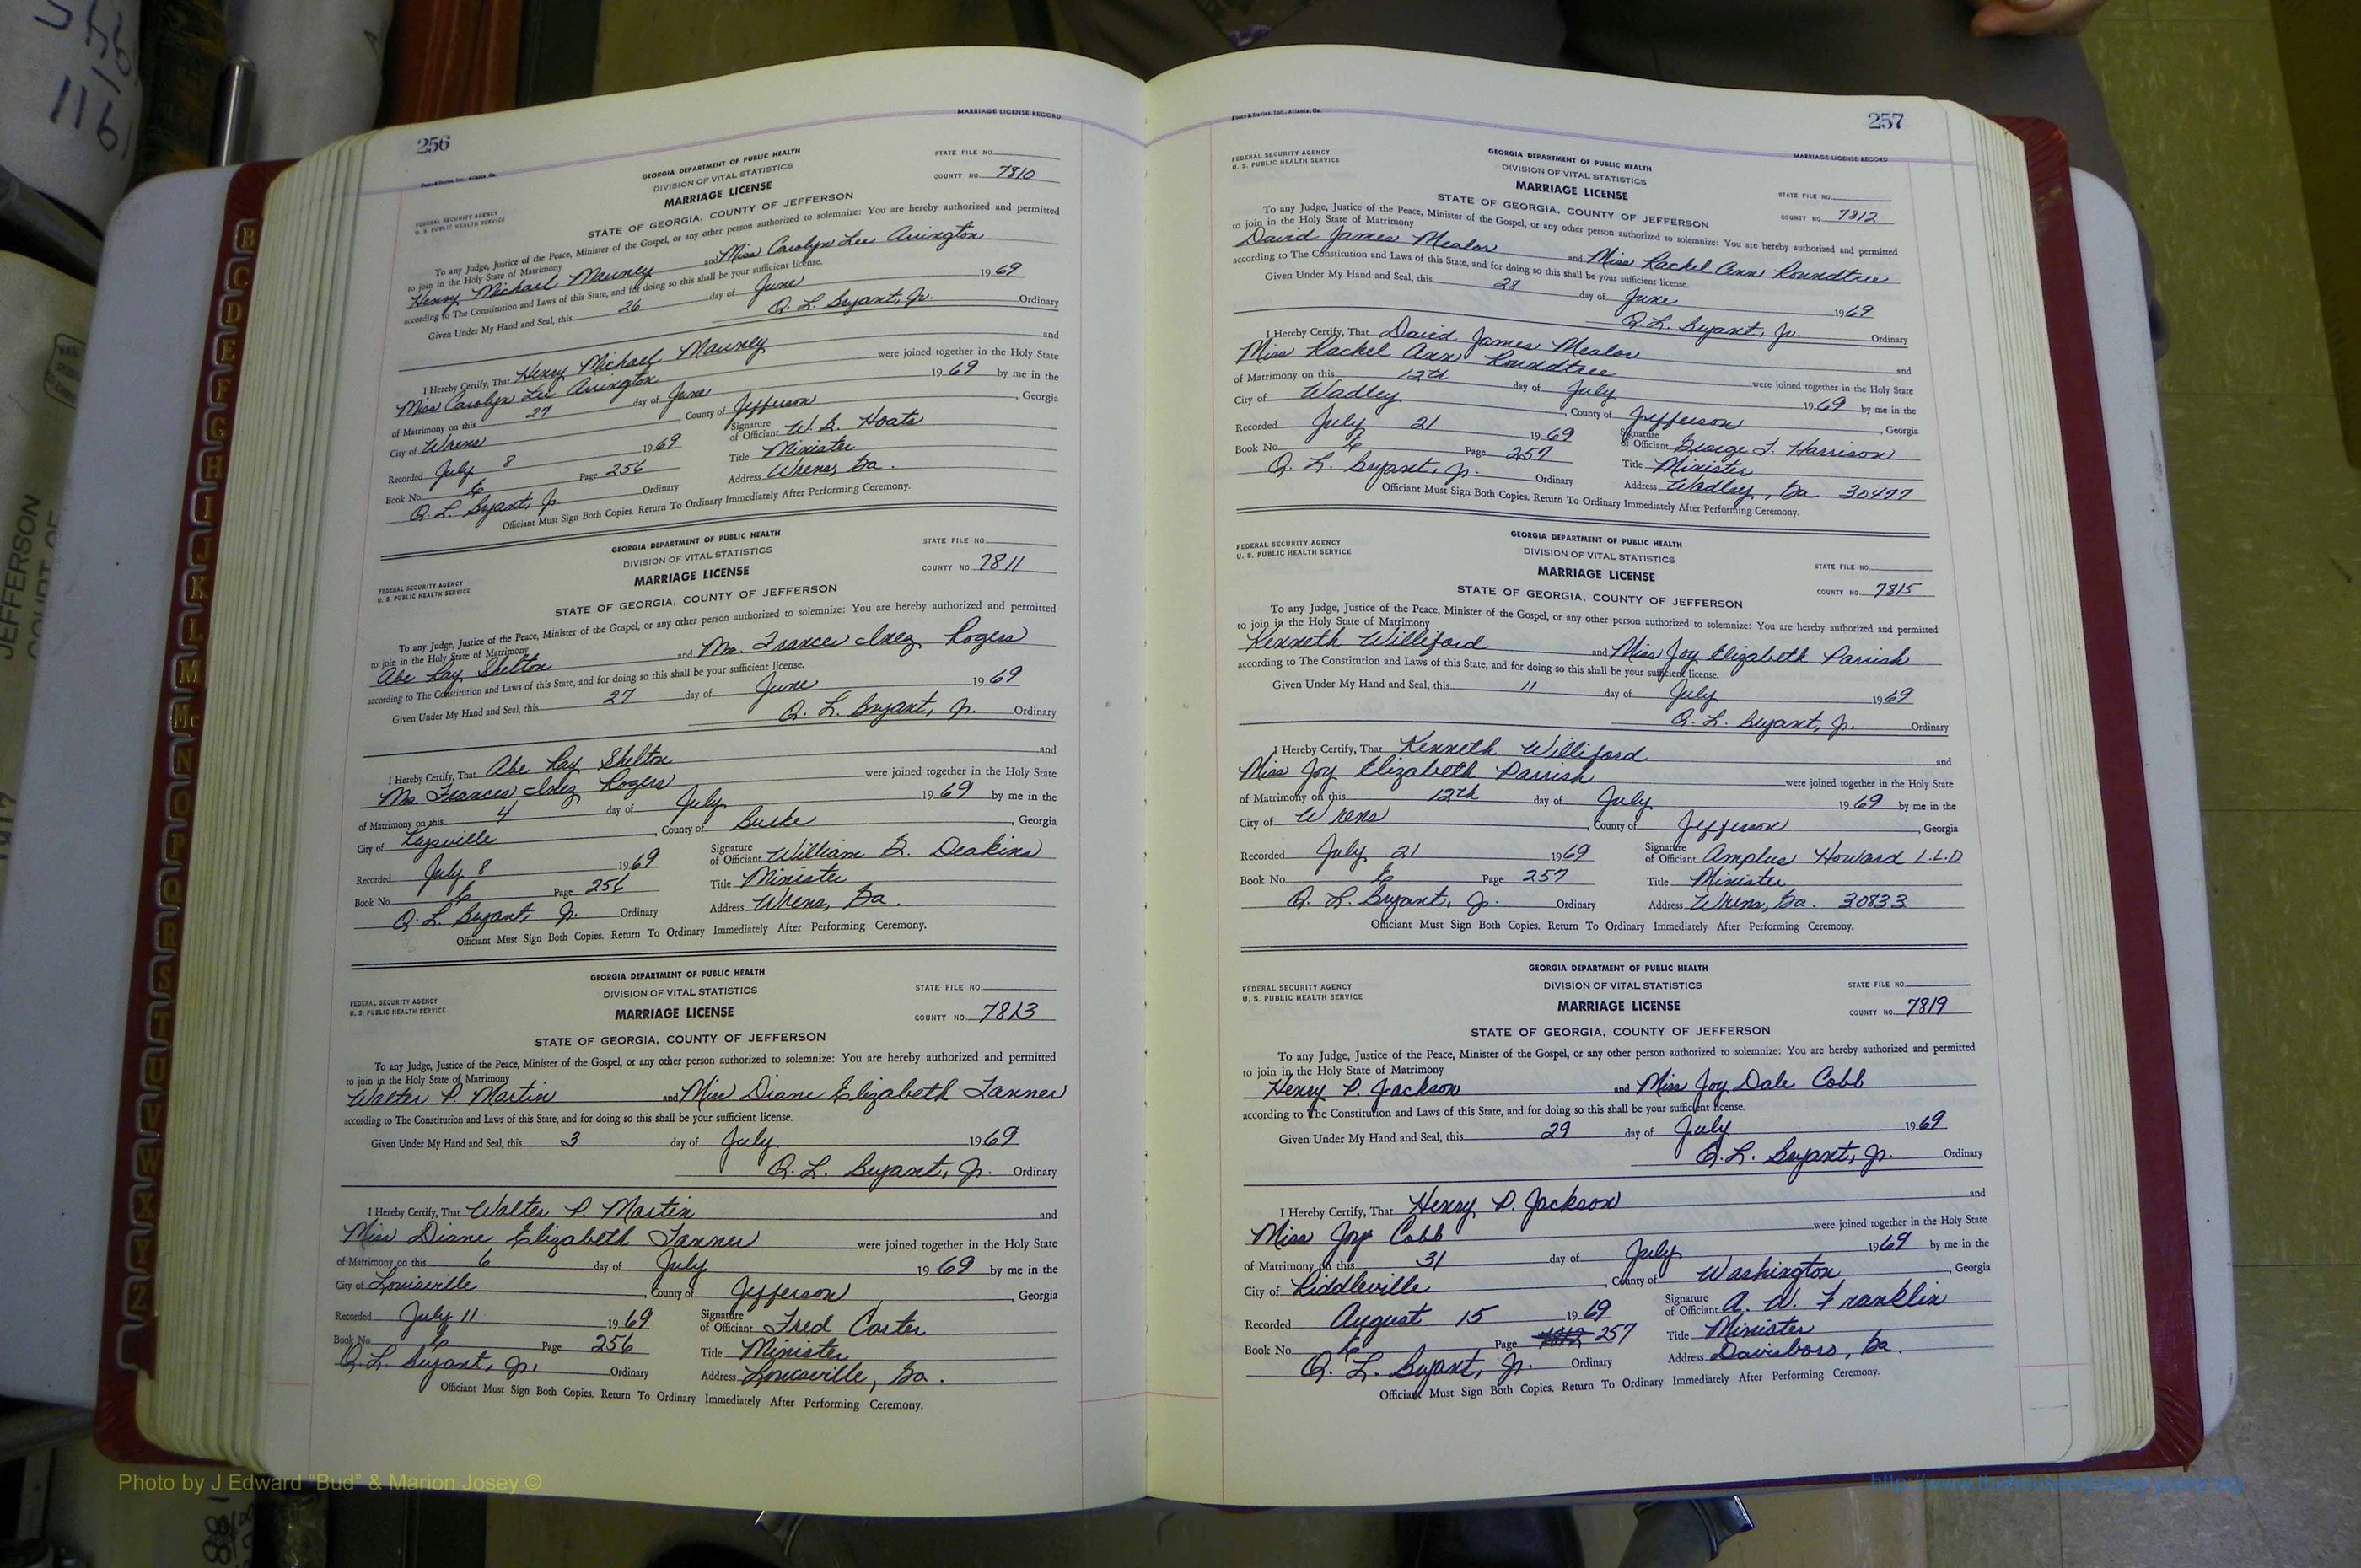 256
MARRIAGE LICENSE RECORD
GEORGIA DEPARTMENT OF PUBLIC HEALTH
DIVISION OF VITAL STATISTICS
MARRIAGE LICENSE
STATE OF GEORGIA, COUNTY OF JEFFERSON
FEDERAL SECURITY AGENCY
U. S. PUBLIC HEALTH SERVICE
STATE FILE NO.
COUNTY NO. 7810
To any Judge, Justice of the Peace, Minister of the Gospel, or any other person authorized to solemnize: You are hereby authorized and permitted
to join in the Holy State of Matrimony
Henry Michael Mauney and Miss Carolyn Lee Arrington
according to The Constitution and Laws of this State, and for doing so this shall be your sufficient license.
Given Under My Hand and Seal, this 26 day of June 1969
Q. L. Bryant, Jr. Ordinary
I Hereby Certify, That Henry Michael Mauney and
Miss Carolyn Lee Arrington were joined together in the Holy State
of Matrimony on this 27 day of June 1969 by me in the
City of Wrens, County of Jefferson, Georgia
Recorded July 8 1969 Signature of Officiant W. L. Hoats
Book No. 6 Page 256 Title Minister
Q. L. Bryant, Jr Ordinary Address Wrens, Ga.
Officiant Must Sign Both Copies. Return To Ordinary Immediately After Performing Ceremony.
GEORGIA DEPARTMENT OF PUBLIC HEALTH
DIVISION OF VITAL STATISTICS
MARRIAGE LICENSE
STATE OF GEORGIA, COUNTY OF JEFFERSON
FEDERAL SECURITY AGENCY
U. S. PUBLIC HEALTH SERVICE
STATE FILE NO.
COUNTY NO. 7811
To any Judge, Justice of the Peace, Minister of the Gospel, or any other person authorized to solemnize: You are hereby authorized and permitted
to join in the Holy State of Matrimony
Abe Ray Shelton and Mrs. Frances Inez Rogers
according to The Constitution and Laws of this State, and for doing so this shall be your sufficient license.
Given Under My Hand and Seal, this 27 day of June 1969
Q. L. Bryant, Jr. Ordinary
I Hereby Certify, That Abe Ray Shelton and
Mrs. Frances Inez Rogers were joined together in the Holy State
of Matrimony on this 4 day of July 1969 by me in the
City of Keysville, County of Burke, Georgia
Recorded July 8 1969 Signature of Officiant William G. Deakins
Book No. 6 Page 256 Title Minister
Q. L. Bryant, Jr. Ordinary Address Wrens, Ga.
Officiant Must Sign Both Copies. Return To Ordinary Immediately After Performing Ceremony.
GEORGIA DEPARTMENT OF PUBLIC HEALTH
DIVISION OF VITAL STATISTICS
MARRIAGE LICENSE
STATE OF GEORGIA, COUNTY OF JEFFERSON
FEDERAL SECURITY AGENCY
U. S. PUBLIC HEALTH SERVICE
STATE FILE NO.
COUNTY NO. 7813
To any Judge, Justice of the Peace, Minister of the Gospel, or any other person authorized to solemnize: You are hereby authorized and permitted
to join in the Holy State of Matrimony
Walter P. Martin and Miss Diane Elizabeth Tanner
according to The Constitution and Laws of this State, and for doing so this shall be your sufficient license.
Given Under My Hand and Seal, this 3 day of July 1969
Q. L. Bryant, Jr. Ordinary
I Hereby Certify, That Walter P. Martin and
Miss Diane Elizabeth Tanner were joined together in the Holy State
of Matrimony on this 6 day of July 1969 by me in the
City of Louisville, County of Jefferson, Georgia
Recorded July 11 1969 Signature of Officiant Fred Carter
Book No. 6 Page 256 Title Minister
Q. L. Bryant, Jr. Ordinary Address Louisville, Ga.
Officiant Must Sign Both Copies. Return To Ordinary Immediately After Performing Ceremony.
257
MARRIAGE LICENSE RECORD
FEDERAL SECURITY AGENCY
U. S. PUBLIC HEALTH SERVICE
GEORGIA DEPARTMENT OF PUBLIC HEALTH
DIVISION OF VITAL STATISTICS
MARRIAGE LICENSE
STATE OF GEORGIA, COUNTY OF JEFFERSON
STATE FILE NO.
COUNTY NO. 7812
To any Judge, Justice of the Peace, Minister of the Gospel, or any other person authorized to solemnize: You are hereby authorized and permitted
to join in the Holy State of Matrimony
David James Mealor and Miss Rachel Ann Roundtree
according to The Constitution and Laws of this State, and for doing so this shall be your sufficient license.
Given Under My Hand and Seal, this 28 day of June 1969
Q. L. Bryant, Jr. Ordinary
I Hereby Certify, That David James Mealor and
Miss Rachel Ann Roundtree were joined together in the Holy State
of Matrimony on this 12th day of July 1969 by me in the
City of Wadley, County of Jefferson, Georgia
Recorded July 21 1969 Signature of Officiant George T. Harrison
Book No. 6 Page 257 Title Minister
Q. L. Bryant, Jr. Ordinary Address Wadley, Ga 30477
Officiant Must Sign Both Copies. Return To Ordinary Immediately After Performing Ceremony.
FEDERAL SECURITY AGENCY
U. S. PUBLIC HEALTH SERVICE
GEORGIA DEPARTMENT OF PUBLIC HEALTH
DIVISION OF VITAL STATISTICS
MARRIAGE LICENSE
STATE OF GEORGIA, COUNTY OF JEFFERSON
STATE FILE NO.
COUNTY NO. 7815
To any Judge, Justice of the Peace, Minister of the Gospel, or any other person authorized to solemnize: You are hereby authorized and permitted
to join in the Holy State of Matrimony
Kenneth Williford and Miss Joy Elizabeth Parrish
according to The Constitution and Laws of this State, and for doing so this shall be your sufficient license.
Given Under My Hand and Seal, this 11 day of July 1969
Q. L. Bryant, Jr. Ordinary
I Hereby Certify, That Kenneth Williford and
Miss Joy Elizabeth Parrish were joined together in the Holy State
of Matrimony on this 12th day of July 1969 by me in the
City of Wrens, County of Jefferson, Georgia
Recorded July 21 1969 Signature of Officiant Amplus Howard L.L.D
Book No. 6 Page 257 Title Minister
Q. L. Bryant, Jr. Ordinary Address Wrens, Ga. 30833
Officiant Must Sign Both Copies. Return To Ordinary Immediately After Performing Ceremony.
FEDERAL SECURITY AGENCY
U. S. PUBLIC HEALTH SERVICE
GEORGIA DEPARTMENT OF PUBLIC HEALTH
DIVISION OF VITAL STATISTICS
MARRIAGE LICENSE
STATE OF GEORGIA, COUNTY OF JEFFERSON
STATE FILE NO.
COUNTY NO. 7819
To any Judge, Justice of the Peace, Minister of the Gospel, or any other person authorized to solemnize: You are hereby authorized and permitted
to join in the Holy State of Matrimony
Henry P. Jackson and Miss Joy Dale Cobb
according to The Constitution and Laws of this State, and for doing so this shall be your sufficient license.
Given Under My Hand and Seal, this 29 day of July 1969
Q. L. Bryant, Jr. Ordinary
I Hereby Certify, That Henry P. Jackson and
Miss Joy Cobb were joined together in the Holy State
of Matrimony on this 31 day of July 1969 by me in the
City of Riddleville, County of Washington, Georgia
Recorded August 15 1969 Signature of Officiant A. W. Franklin
Book No. 6 Page 257 Title Minister
Q. L. Bryant, Jr. Ordinary Address Davisboro, Ga.
Officiant Must Sign Both Copies. Return To Ordinary Immediately After Performing Ceremony.
B
C
D
E
F
G
H
I
J
K
L
M
Mc
N
O
P
Q
R
S
T
U
V
W
X
Y
Z
JEFFERSON
Photo by J Edward “Bud” & Marion Josey ©